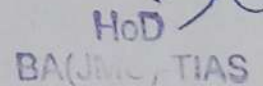 HOD
BA(JMC), TIAS